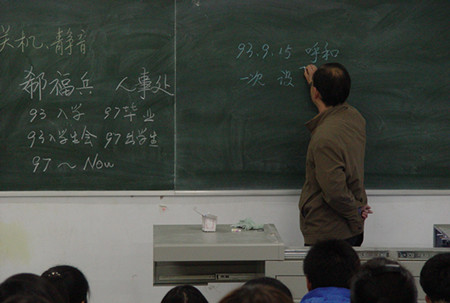 关机、静音
郗福兵 人事处
93入学 97毕业
93入学生会 97出学生
97～Now
93.9.15 呼和
一次 没